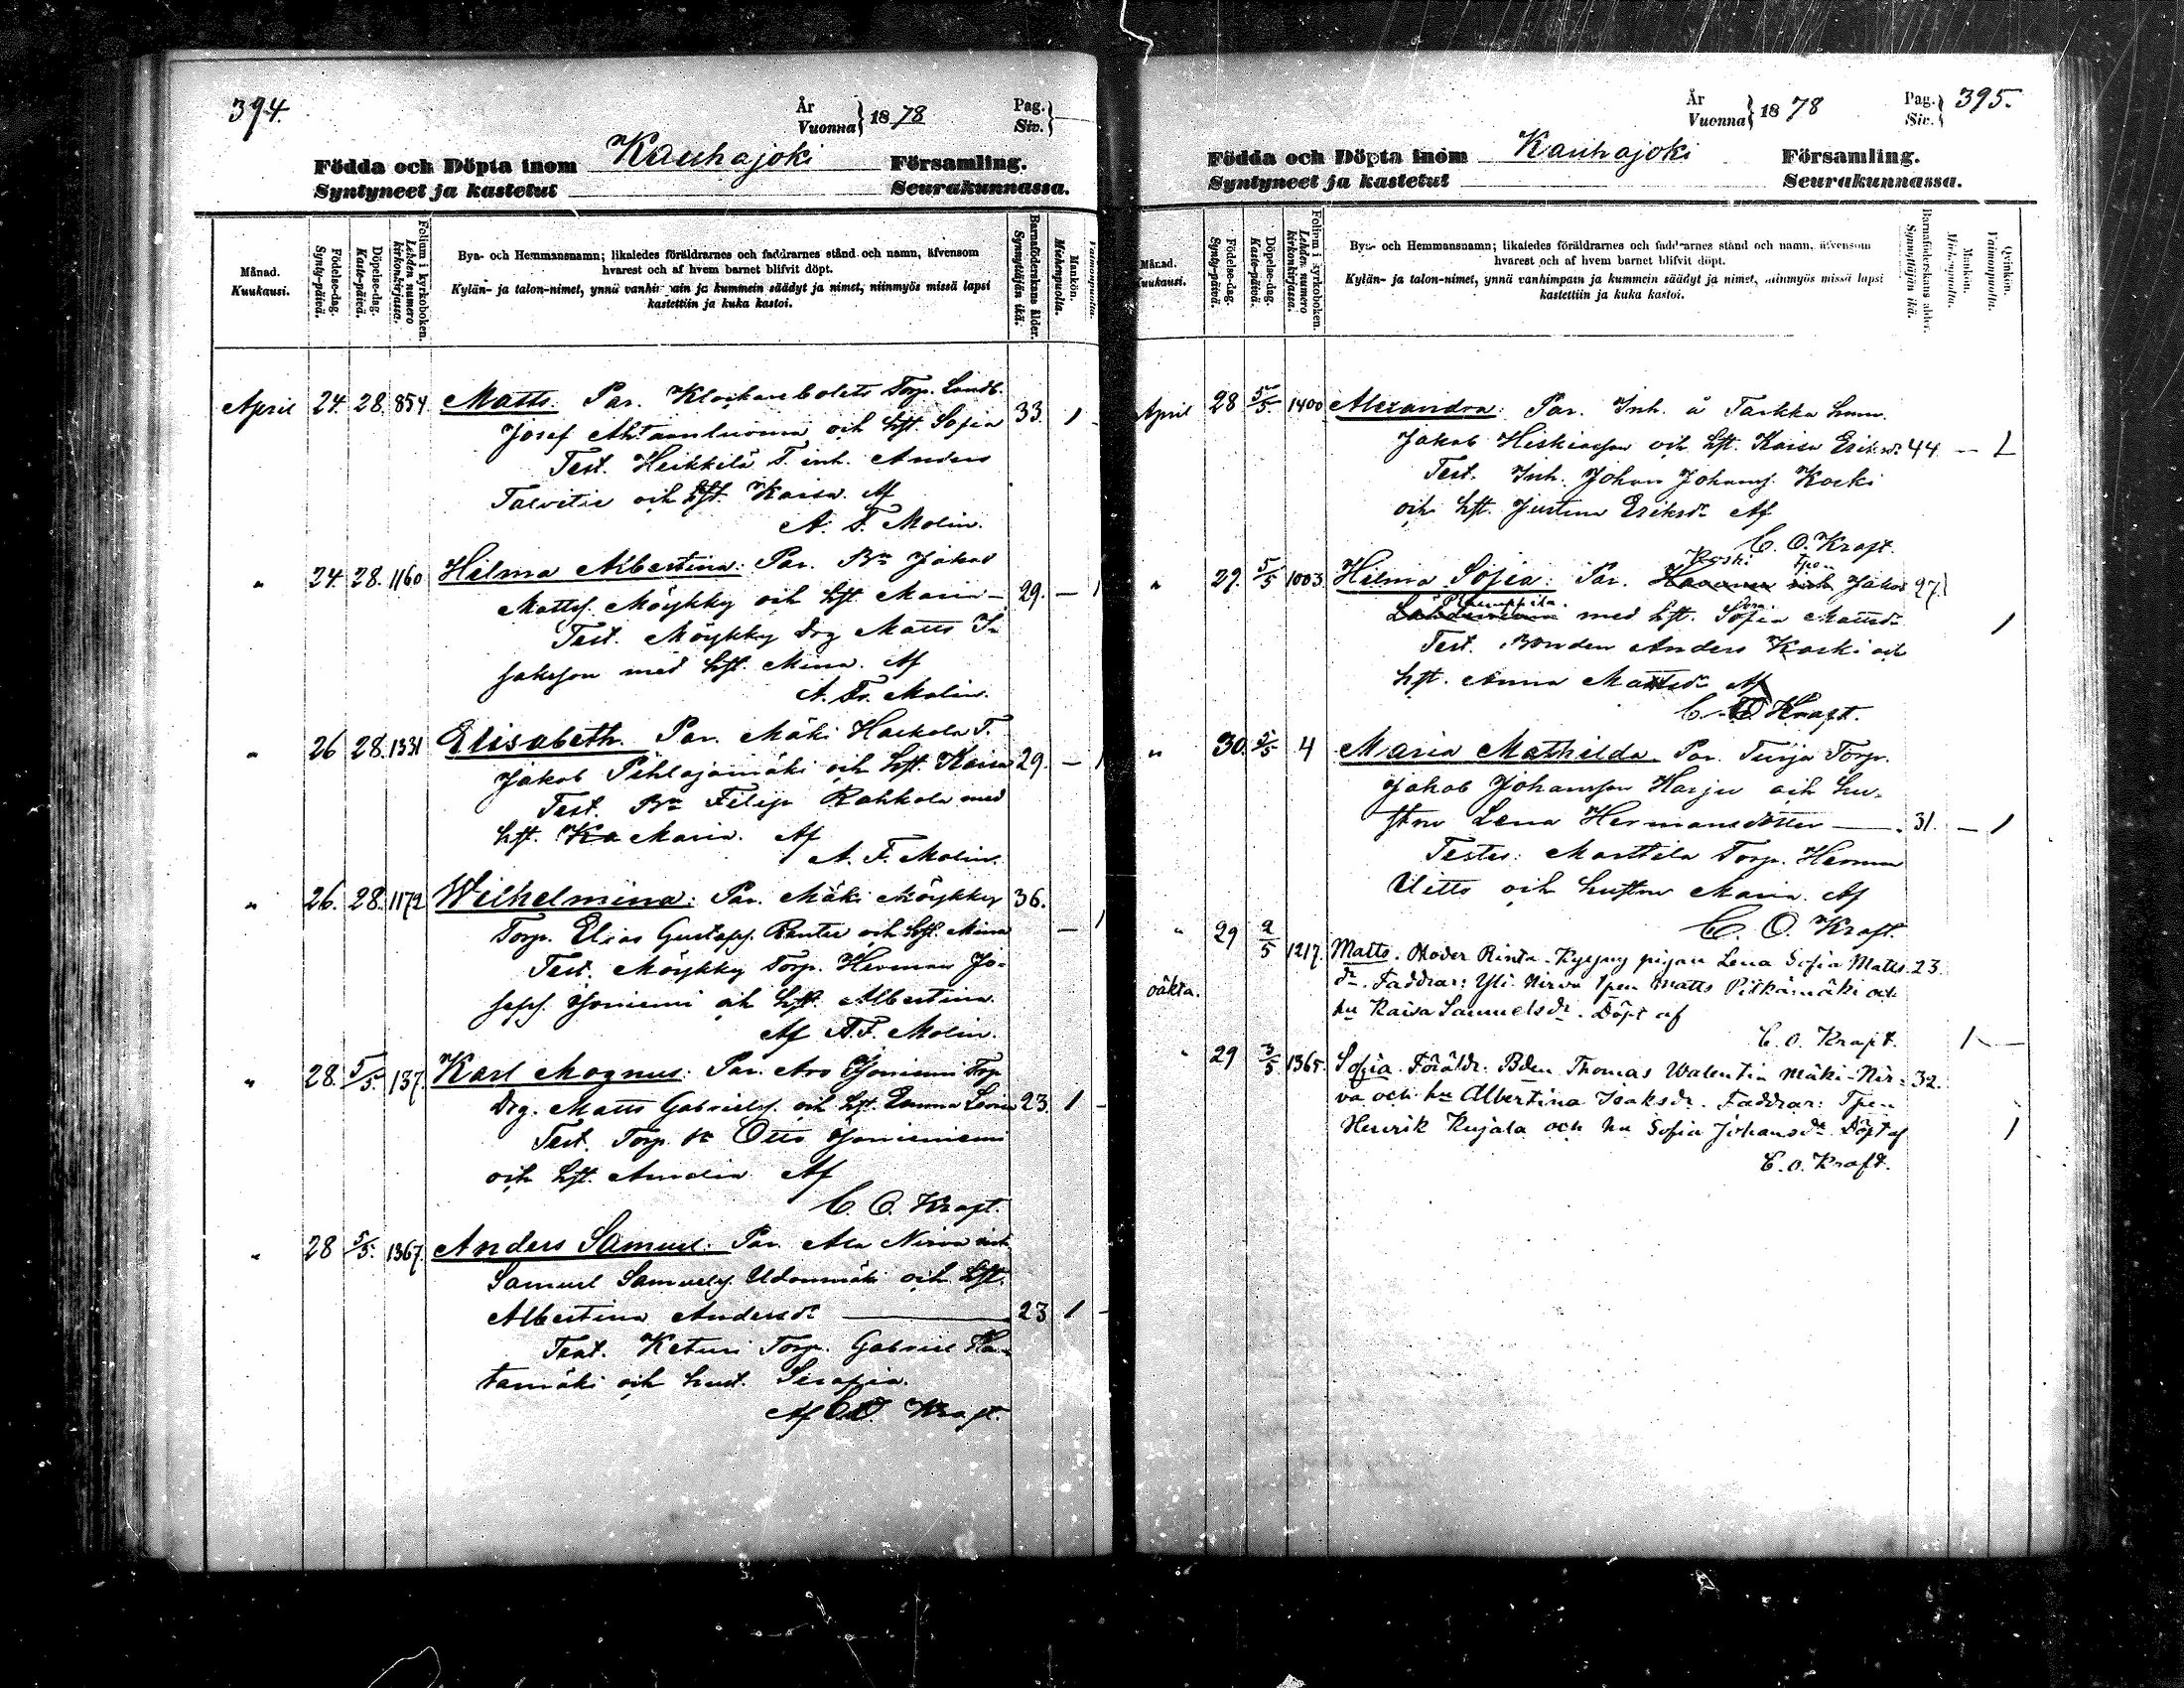 394.
År
Vuonna } 1878
Pag.
Siv. }
Födda och Döpta inom Kauhajoki Församling.
Syntyneet ja kastetut Seurakunnassa.
Månad.
Kuukausi.
Födelse-dag.
Synty-päivä.
Döpelse-dag.
Kaste-päivä.
Folium i kyrkoboken.
Lehden numero kirkonkirjassa.
Bya- och Hemmansnamn; likaledes föräldrarnes och faddrarnes stånd och namn, äfvensom
hvarest och af hvem barnet blifvit döpt.
Kylän- ja talon-nimet, ynnä vanhimpain ja kummein säädyt ja nimet, niinmyös missä lapsi
kastettiin ja kuka kastoi.
Barnaföderskans ålder.
Synnyttäjän ikä.
Mankön.
Miehenpuolta.
Vaimonpuolta.
April 24. 28. 854 Matts. Par. Klockarebolets Torp. Landb.
Josef Ahtaanluoma och hst. Sofia 33. 1
Test. Heikkilä T. inh. Anders
Talvitie och hst. Kaisa. Af
A. F. Molin.
" 24. 28. 1160 Hilma Albertina: Par. Bn Jakob
Mattss. Möykky och hst. Maria — 29. — 1
Test. Möykky Drg Matts
Jaksson med hst. Mina. Af
A. Fr. Molin.
" 26 28. 1331 Elisabeth. Par. Mäki Harkola T.
Jakob Pihlajamäki och hst. Kaisa 29. — 1
Test. Bn Filip Rahkola med
hst. Ka Maria. Af
A. F. Molin.
" 26. 28. 1172 Wilhelmina: Par. Mäki Möykky 36.
Torp. Elias Gustafss. Rantu och hst. Mina — 1
Test. Möykky Torp. Herman Jo-
sefss. Yoniemi och hst. Albertina.
Af A. F. Molin.
" 28. 5/5. 137. Karl Magnus: Par. Aro Yoniemi Torp
Drg. Matts Gabrielss. och hst. Emma Lovisa 23 1 -
Test. Torp. Otto
och hst. Amalia Af
C. O. Kraft.
" 28 5/5. 1367. Anders Samuel: Par. Ala Nirva inh.
Samuel Samuelss. Udonmäki och hst.
Albertina Andersdr — 23 1 -
Test. Keturi Torp. Gabriel Ha-
tamäki och hust. Serafia.
Af C. O. Kraft.
År
Vuonna } 1878
Pag.
Siv. } 395.
Födda och Döpta inom Kauhajoki Församling.
Syntyneet ja kastetut Seurakunnassa.
Månad.
Kuukausi.
Födelse-dag.
Synty-päivä.
Döpelse-dag.
Kaste-päivä.
Folium i kyrkoboken.
Lehden numero kirkonkirjassa.
Bya- och Hemmansnamn; likaledes föräldrarnes och faddrarnes stånd och namn, äfvensom
hvarest och af hvem barnet blifvit döpt.
Kylän- ja talon-nimet, ynnä vanhimpain ja kummein säädyt ja nimet, niinmyös missä lapsi
kastettiin ja kuka kastoi.
Barnaföderskans ålder.
Synnyttäjän ikä.
Mankön.
Miehenpuolta.
Qvinkön.
Vaimonpuolta.
April 28 5/5. 1400 Alexandra: Par. Inh. å Tarkka hem.
Jakob Hiskiasson och hst. Kaisa Eriksdr 44. — 1
Test. Inh. Johan Johanss. Koski
och hst. Justina Eriksdr Af
C. O. Kraft.
Koski tpen
" 29. 5/5 1003. Hilma Sofia: Par. Jakob 27.
med hst. Sofia Mattsdr 1
Test. Bonden Anders Koski och
hst. Anna Mattsdr Af
C. O. Kraft.
" 30. 5/5 4 Maria Mathilda. Par. Turja Torp.
Jakob Johansson Harju och hu-
stru Lena Hermansdotter — 31. — 1
Testes: Marttila Torp. Herman
Uitto och hustru Maria. Af
C. O. Kraft.
" 29 2/5 1217. Matts. Moder Rinta-Kyyny pigan Lena Sofia Matts 23.
oäkta. dr. Faddrar: Yli-Nirva tpen Matts Pitkämäki och
hu Kaisa Samuelsdr. Döpt af
C. O. Kraft. 1 —
" 29 3/5 1365. Sofia. Föräldr. Bden Thomas Walentin Mäki-Nir- 32.
va och hu Albertina Isaksdr. Faddrar: Tpen
Henrik Kujala och hu Sofia Johansdr. Döpt af 1
C. O. Kraft.